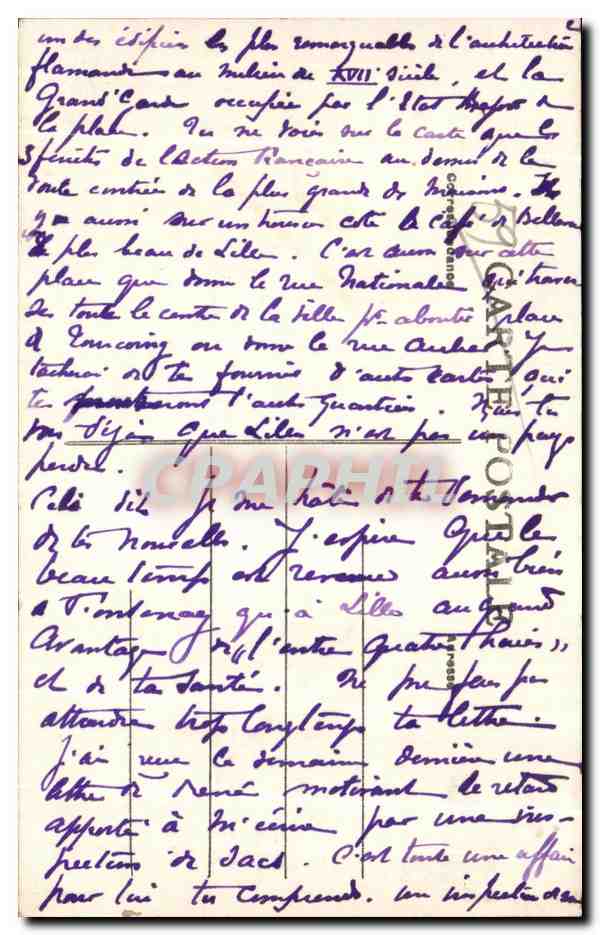 2
un des édifices les plus remarquables de l'architecture
flamande au milieu du XVII siècle, et la
Grand'Garde occupée par l'Etat Major de
la place. Tu ne vois sur la carte que les
3 fenêtres de l'Action Française au dessus de la
toute contrée de la plus grande des maisons.
y a aussi sur un côté le Café
le plus beau de Lille. C'est aussi sur cette
place que donne la rue Nationale qui traverse
toute le centre de la ville pr aboutir place
de Tourcoing où donne la rue Je
tacherai de te fournir d'autres cartes qui
te montreront l'autres quartiers. Mais tu
vois déjà que Lille n'est pas un pays
perdu.
Cela dit je me hâte de te demander
de tes nouvelles. J'espère que le
beau temps est revenu aussi bien
à Fontenay qu'à Lille au grand
avantage de "l'entre quatre haies"
et de ta santé. Ne me fais pas
attendre trop longtemps ta lettre.
J'ai reçu la semaine dernière une
lettre de René motivant le retard
apporté à m'écrire par une ins-
pection de sacs. C'est toute une affaire
pour lui tu comprends. un inspection de
CARTE POSTALE
Correspondance
Adresse
CPAPHIL